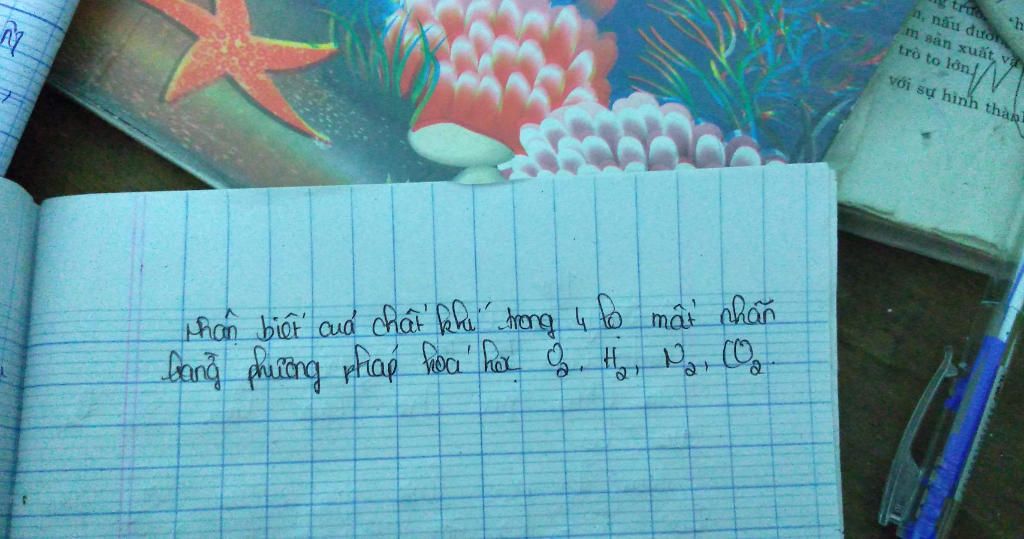 ng trườ
n, nấu dướ
m sản xuất và
trò to lớn
với sự hình thàn
Nhận biết cuả chất khí trong 4 lọ mất nhãn
bằng phương pháp hóa học O₂, H₂, N₂, CO₂.